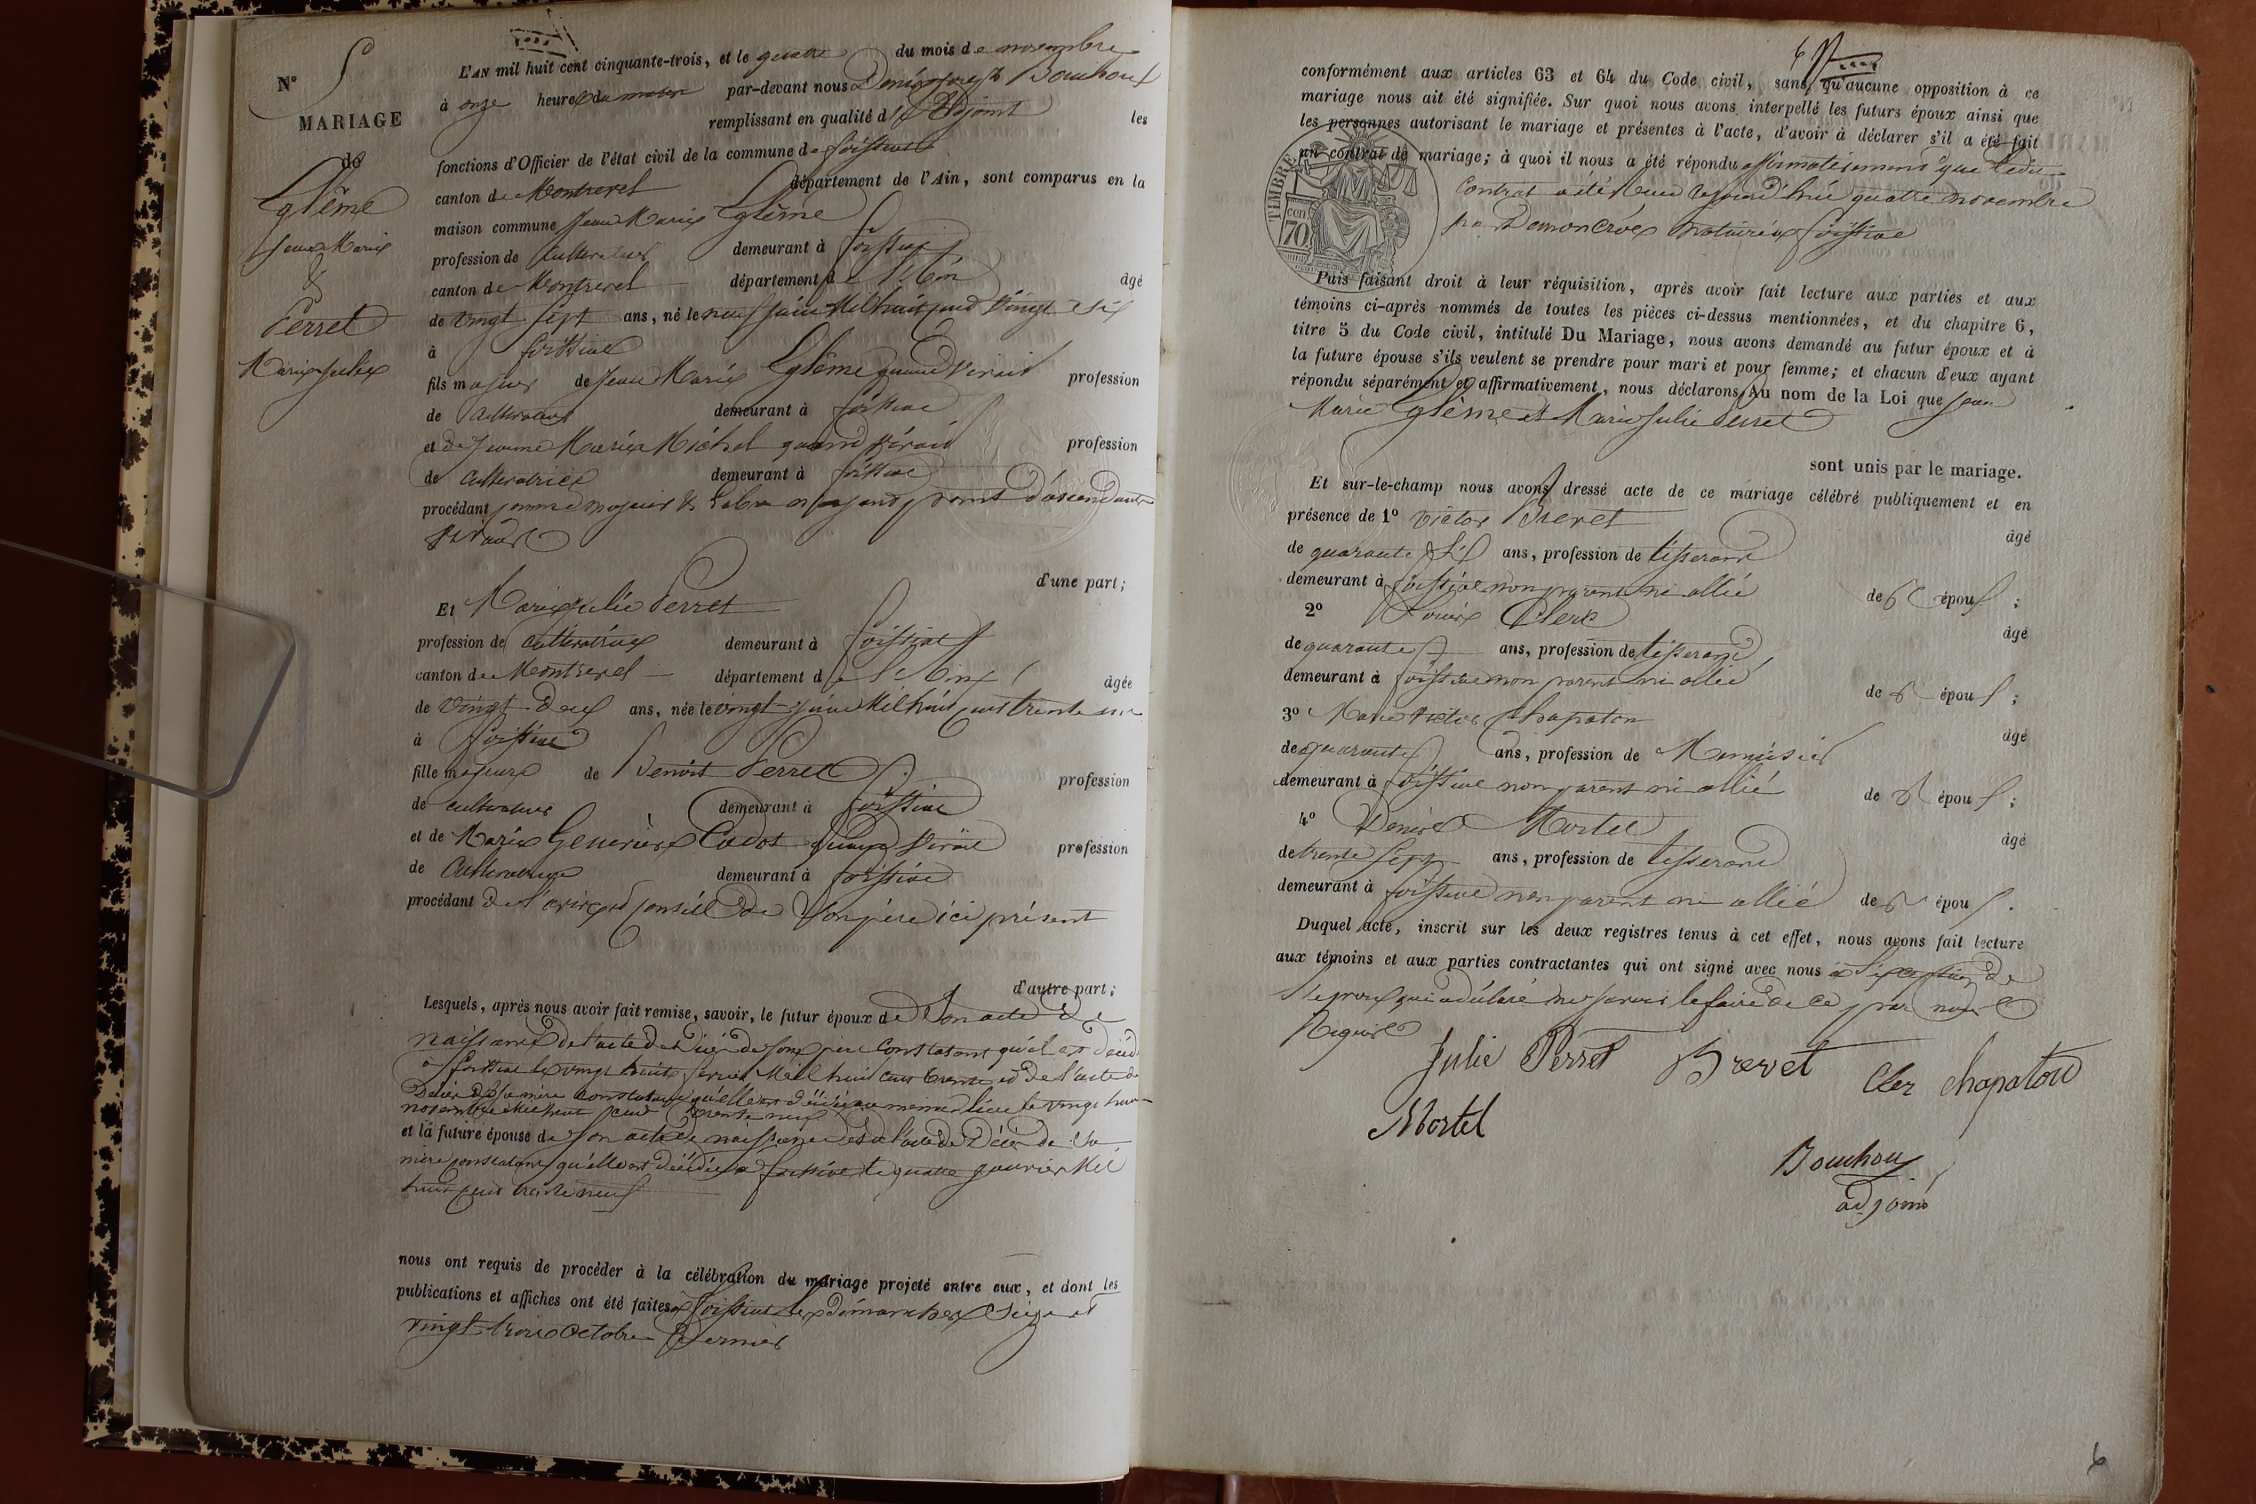 N° 5
MARIAGE
de
Eglême
Jean Marie
&
Perret
Marie Julie
L'AN mil huit cent cinquante-trois, et le quatre du mois de novembre
à onze heures du matin par-devant nous Denis Joseph Bouchoux
remplissant en qualité d'adjoint les
fonctions d'Officier de l'état civil de la commune de foissiat
canton de Montrevel département de l'Ain, sont comparus en la
maison commune Jean Marie Eglême
profession de cultivateur demeurant à foissiat
canton de Montrevel département de l'Ain âgé
de vingt sept ans, né le neuf juin Mil huit cent vingt six
à foissiat
fils majeur de Jean Marie Eglême quand vivait profession
de cultivateur demeurant à foissiat
et de Jeanne Marie Michel quand vivait profession
de cultivatrice demeurant à foissiat
procédant comme majeur & libre n'ayant point d'ascendants
vivants
d'une part;
Et Marie Julie Perret
profession de cultivatrice demeurant à foissiat
canton de Montrevel département de l'Ain âgée
de vingt Deux ans, née le vingt juin Mil huit cent trente un
à foissiat
fille majeure de Benoit Perret profession
de cultivateur demeurant à foissiat
et de Marie Geneviève Cadot quand vivait profession
de cultivatrice demeurant à foissiat
procédant de l'avis et conseil de son père ici présent
d'autre part;
Lesquels, après nous avoir fait remise, savoir, le futur époux de son acte de
naissance de l'acte de décès de son père constatant qu'il est décédé
à foissiat le vingt huit Mil huit cent trente et de l'acte de
décès de sa mère constatant qu'elle est décédée au même lieu le vingt
novembre mil huit cent trente neuf
et la future épouse de son acte de naissance et de l'acte de décès de sa
mère constatant qu'elle est décédée à foissiat le quatre janvier Mil
huit cent trente neuf
nous ont requis de procéder à la célébration du mariage projeté entre eux, et dont les
publications et affiches ont été faites à foissiat les dimanches seize et
vingt trois octobre dernier
conformément aux articles 63 et 64 du Code civil, sans qu'aucune opposition à ce
mariage nous ait été signifiée. Sur quoi nous avons interpellé les futurs époux ainsi que
les personnes autorisant le mariage et présentes à l'acte, d'avoir à déclarer s'il a été fait
un contrat de mariage; à quoi il nous a été répondu affirmativement que ledit
contrat a été reçu cejourd'hui quatre novembre
par Demoncroix notaire à foissiat
TIMBRE
con
70
Puis faisant droit à leur réquisition, après avoir fait lecture aux parties et aux
témoins ci-après nommés de toutes les pièces ci-dessus mentionnées, et du chapitre 6,
titre 5 du Code civil, intitulé Du Mariage, nous avons demandé au futur époux et à
la future épouse s'ils veulent se prendre pour mari et pour femme; et chacun d'eux ayant
répondu séparément et affirmativement, nous déclarons Au nom de la Loi que Jean
Marie Eglême et Marie Julie Perret
sont unis par le mariage.
Et sur-le-champ nous avons dressé acte de ce mariage célébré publiquement et en
présence de 1° Victor Brevet âgé
de quarante six ans, profession de tisserand
demeurant à foissiat non parent ni allié des époux;
2° Louis Clerc âgé
de quarante ans, profession de tisserand
demeurant à foissiat non parent ni allié des époux;
3° Marie Victor Chapaton âgé
de quarante ans, profession de Menuisier
demeurant à foissiat non parent ni allié des époux;
4° Denis Mortel âgé
de trente sept ans, profession de tisserand
demeurant à foissiat non parent ni allié des époux.
Duquel acte, inscrit sur les deux registres tenus à cet effet, nous avons fait lecture
aux témoins et aux parties contractantes qui ont signé avec nous à l'exception de
l'époux qui a déclaré ne savoir le faire de ce par nous
Requis
Julie Perret Brevet Cler chapaton
Mortel
Bouchoux
adjoint
6